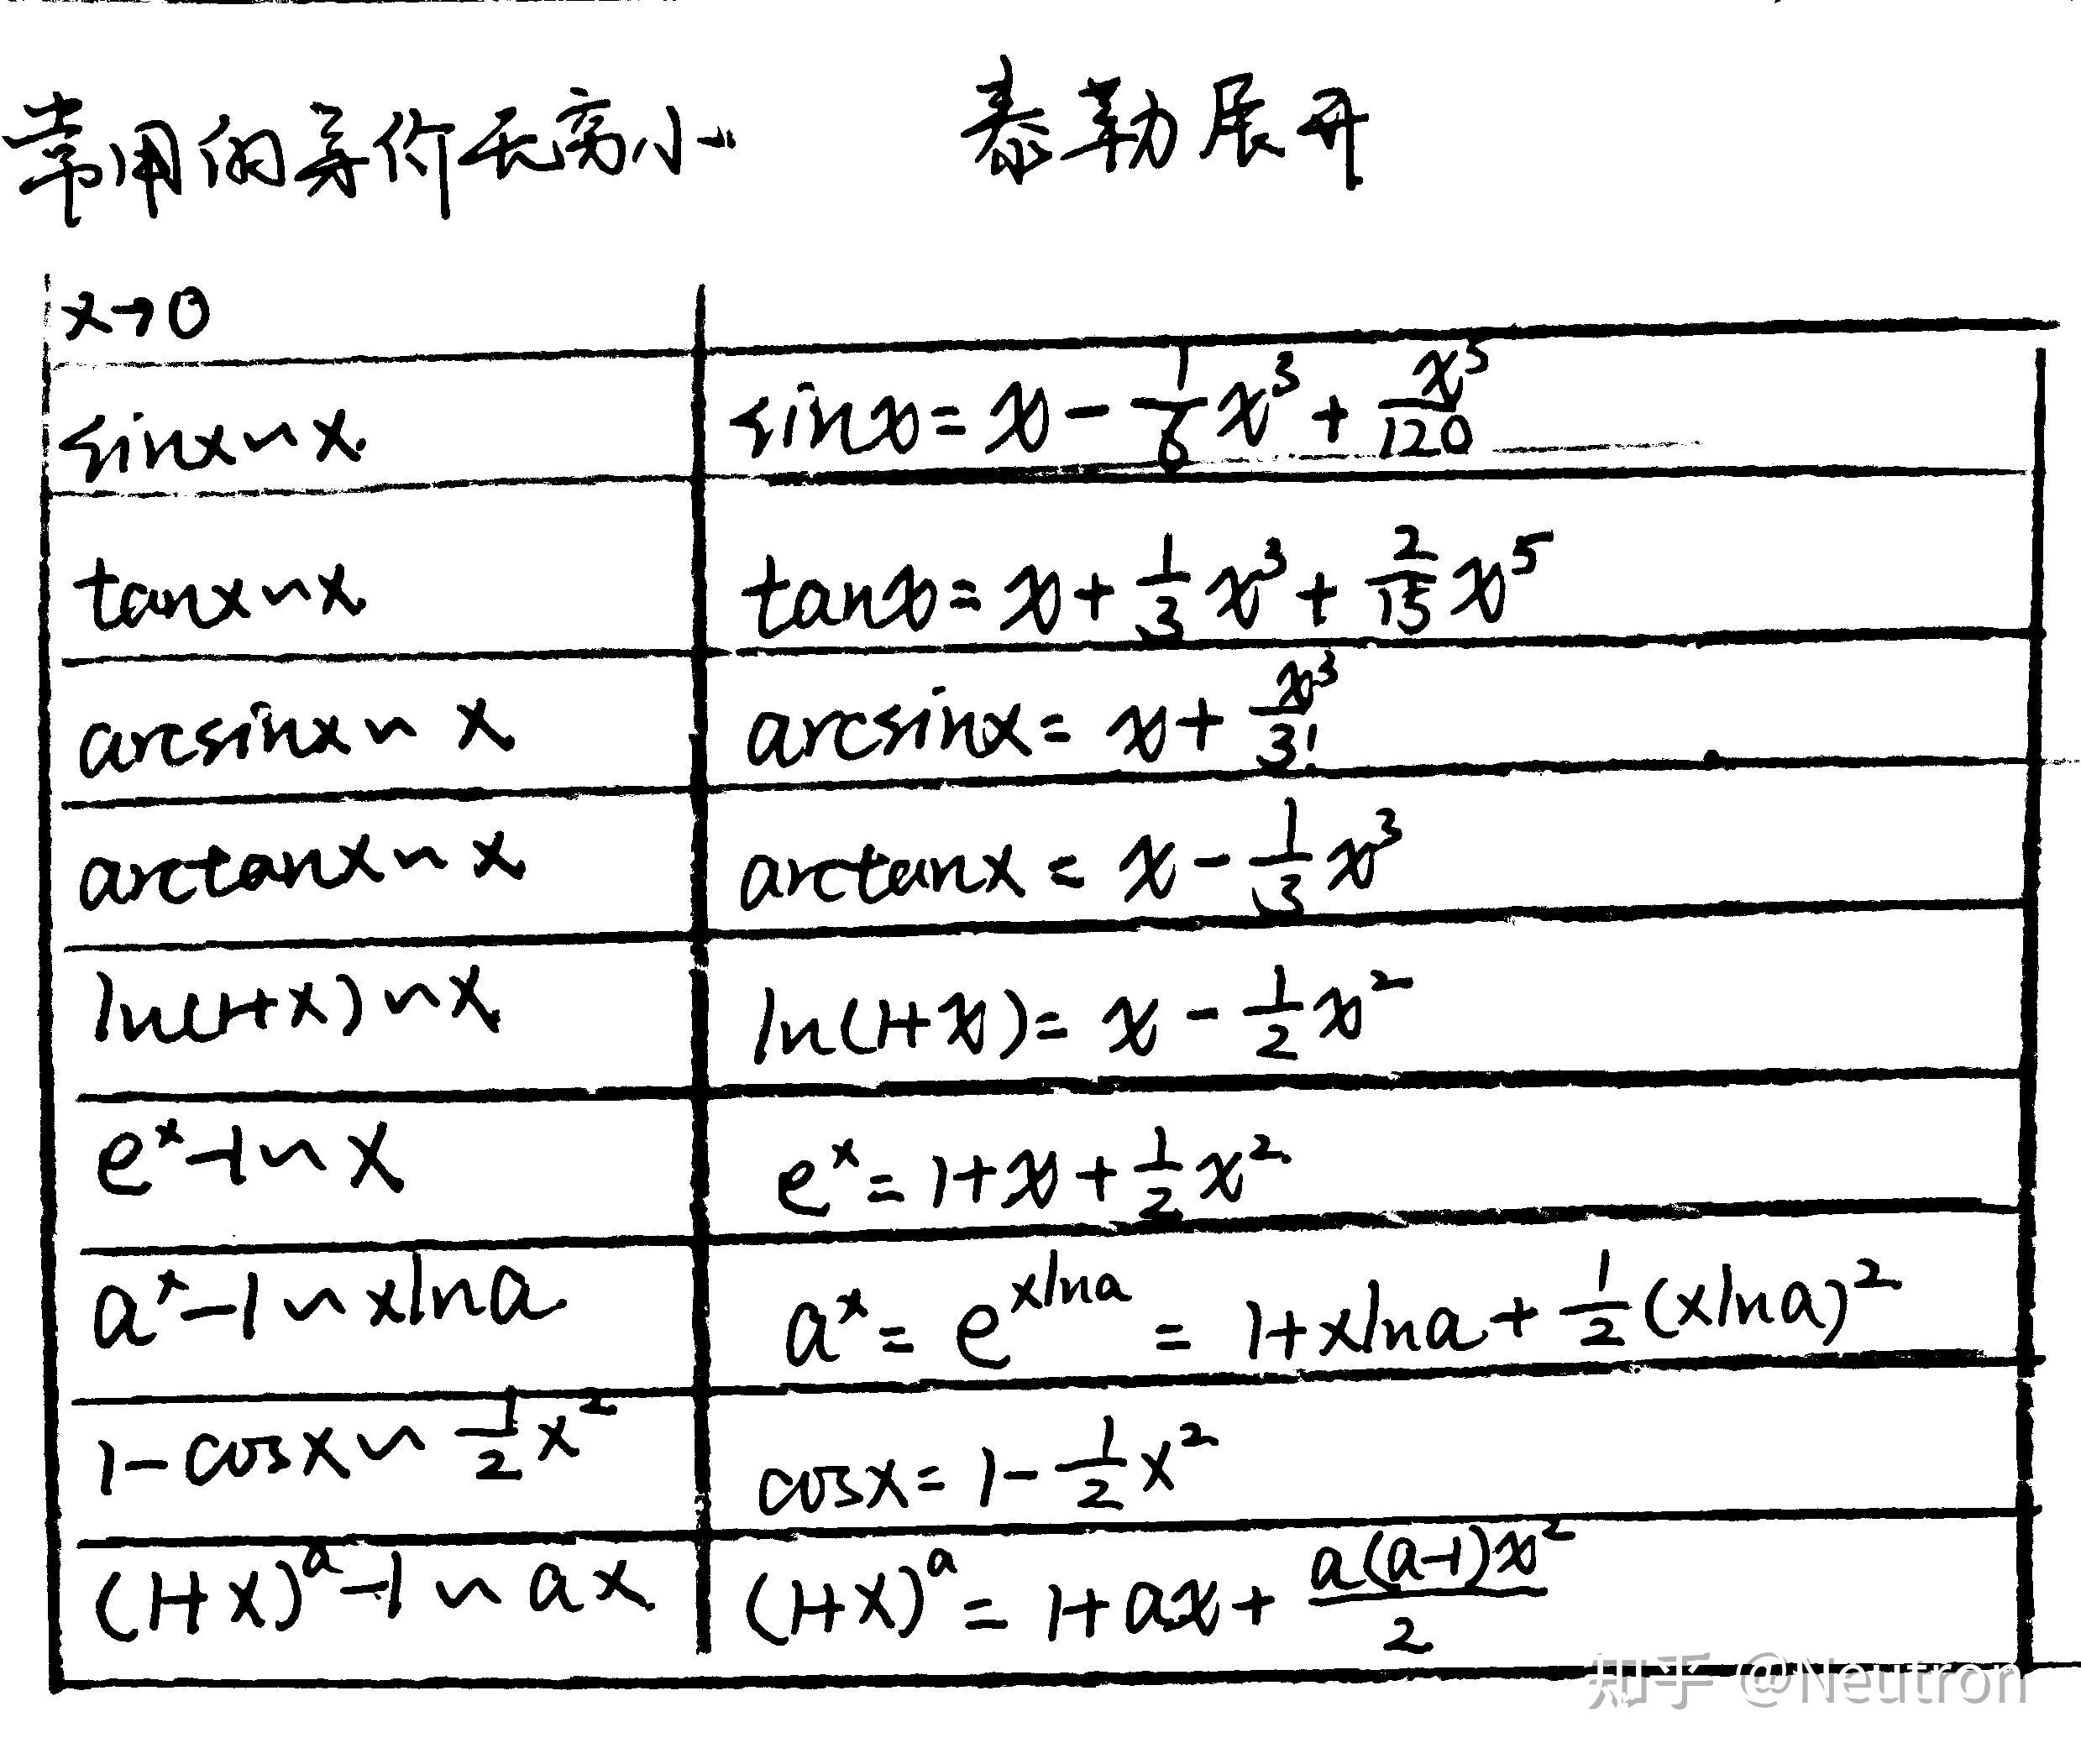 常用的等价无穷小 泰勒展开
x→0
sinx~x sinx=x-1/6x³+x⁵/120
tanx~x tanx=x+1/3x³+2/15x⁵
arcsinx~x arcsinx=x+x³/3!
arctanx~x arctanx=x-1/3x³
ln(1+x)~x ln(1+x)=x-1/2x²
eˣ-1~x eˣ=1+x+1/2x²
aˣ-1~xlna aˣ=e^{xlna}=1+xlna+1/2(xlna)²
1-cosx~1/2x² cosx=1-1/2x²
(1+x)ᵃ-1~ax (1+x)ᵃ=1+ax+a(a-1)x²/2
知乎 @Neutron